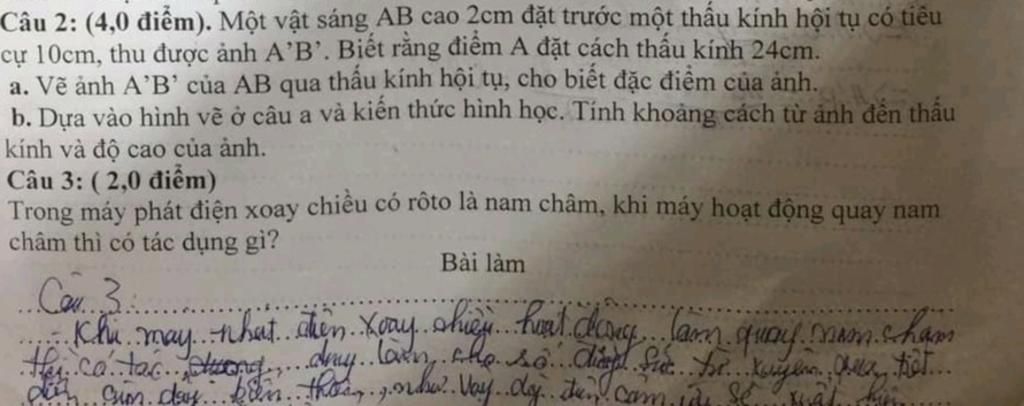 Câu 2: (4,0 điểm). Một vật sáng AB cao 2cm đặt trước một thấu kính hội tụ có tiêu
cự 10cm, thu được ảnh A'B'. Biết rằng điểm A đặt cách thấu kính 24cm.
a. Vẽ ảnh A'B' của AB qua thấu kính hội tụ, cho biết đặc điểm của ảnh.
b. Dựa vào hình vẽ ở câu a và kiến thức hình học. Tính khoảng cách từ ảnh đến thấu
kính và độ cao của ảnh.
Câu 3: ( 2,0 điểm)
Trong máy phát điện xoay chiều có rôto là nam châm, khi máy hoạt động quay nam
châm thì có tác dụng gì?
Bài làm
Câu 3:
- Khi may điện xoay chiều hoạt động làm quay nam châm
thì có tác làm cho số xuyên qua tiết
diện cuộn dây biến như vậy cảm